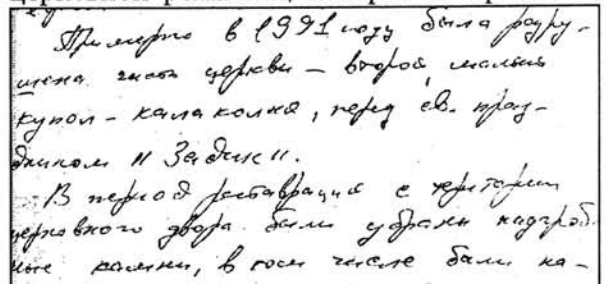 Примерно в 1991 году была разру-
шена часть церкви – второй, малый
купол - калаколня, перед ев. праз-
дником "Задик".
В период реставрации с территории
церковного двора были убраны надгроб-
ные камни, в том числе были на-